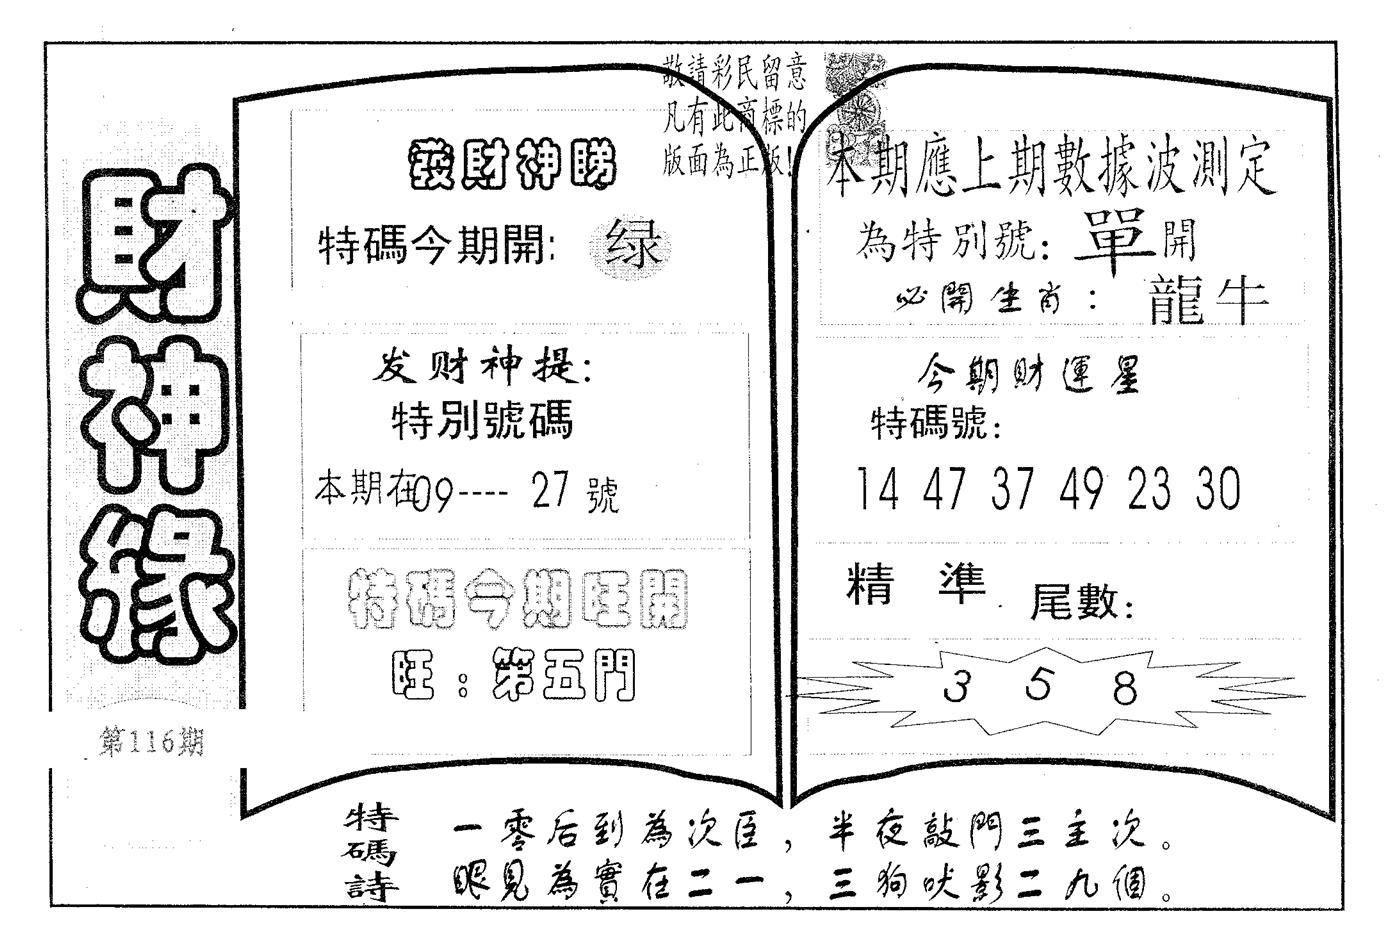 財神緣
第116期
敬請彩民留意
凡有此商標的
版面為正版!
發財神睇
特碼今期開: 绿
发财神提:
特別號碼
本期在09---- 27 號
特碼今期旺開
旺: 第五門
本期應上期數據波測定
為特別號: 單開
必開生肖: 龍牛
今期財運星
特碼號:
14 47 37 49 23 30
精 準 尾數:
3 5 8
特碼詩
一零后到為次臣, 半夜敲門三主次。
眼見為實在二一, 三狗吠影二九個。